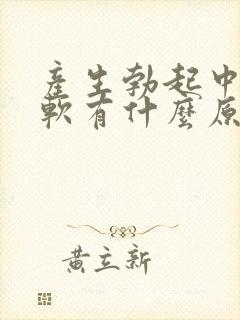 產生勃起中
軟有什麼原
黃立新